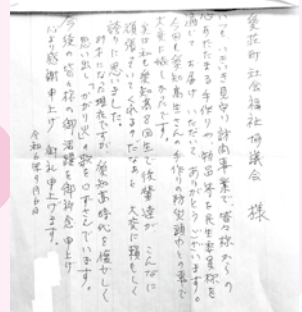 愛荘町社会福祉協議会 様
いつも、いきいき見守り訪問事業で、皆々様からの
心あたたまる手作りや物品等を民生委員様を
通じてお届けいただいて、ありがとうございます。
今回も愛知高生さんの手作りの防災頭巾との事で
大変嬉しかったです。
実は私も愛知高8回生で後輩達が、こんなに
頑張っていてくれるのだなあと大変に頼もしく
誇りに思いました。
対木になった現在ですが、愛知高時代を懐かしく
思い出し「かがり火」の歌を口ずさんでいます。
今後の皆々様の御活躍を御祈念申上げ
心より感謝申上げ御礼申上げます。
令和6年 月6日